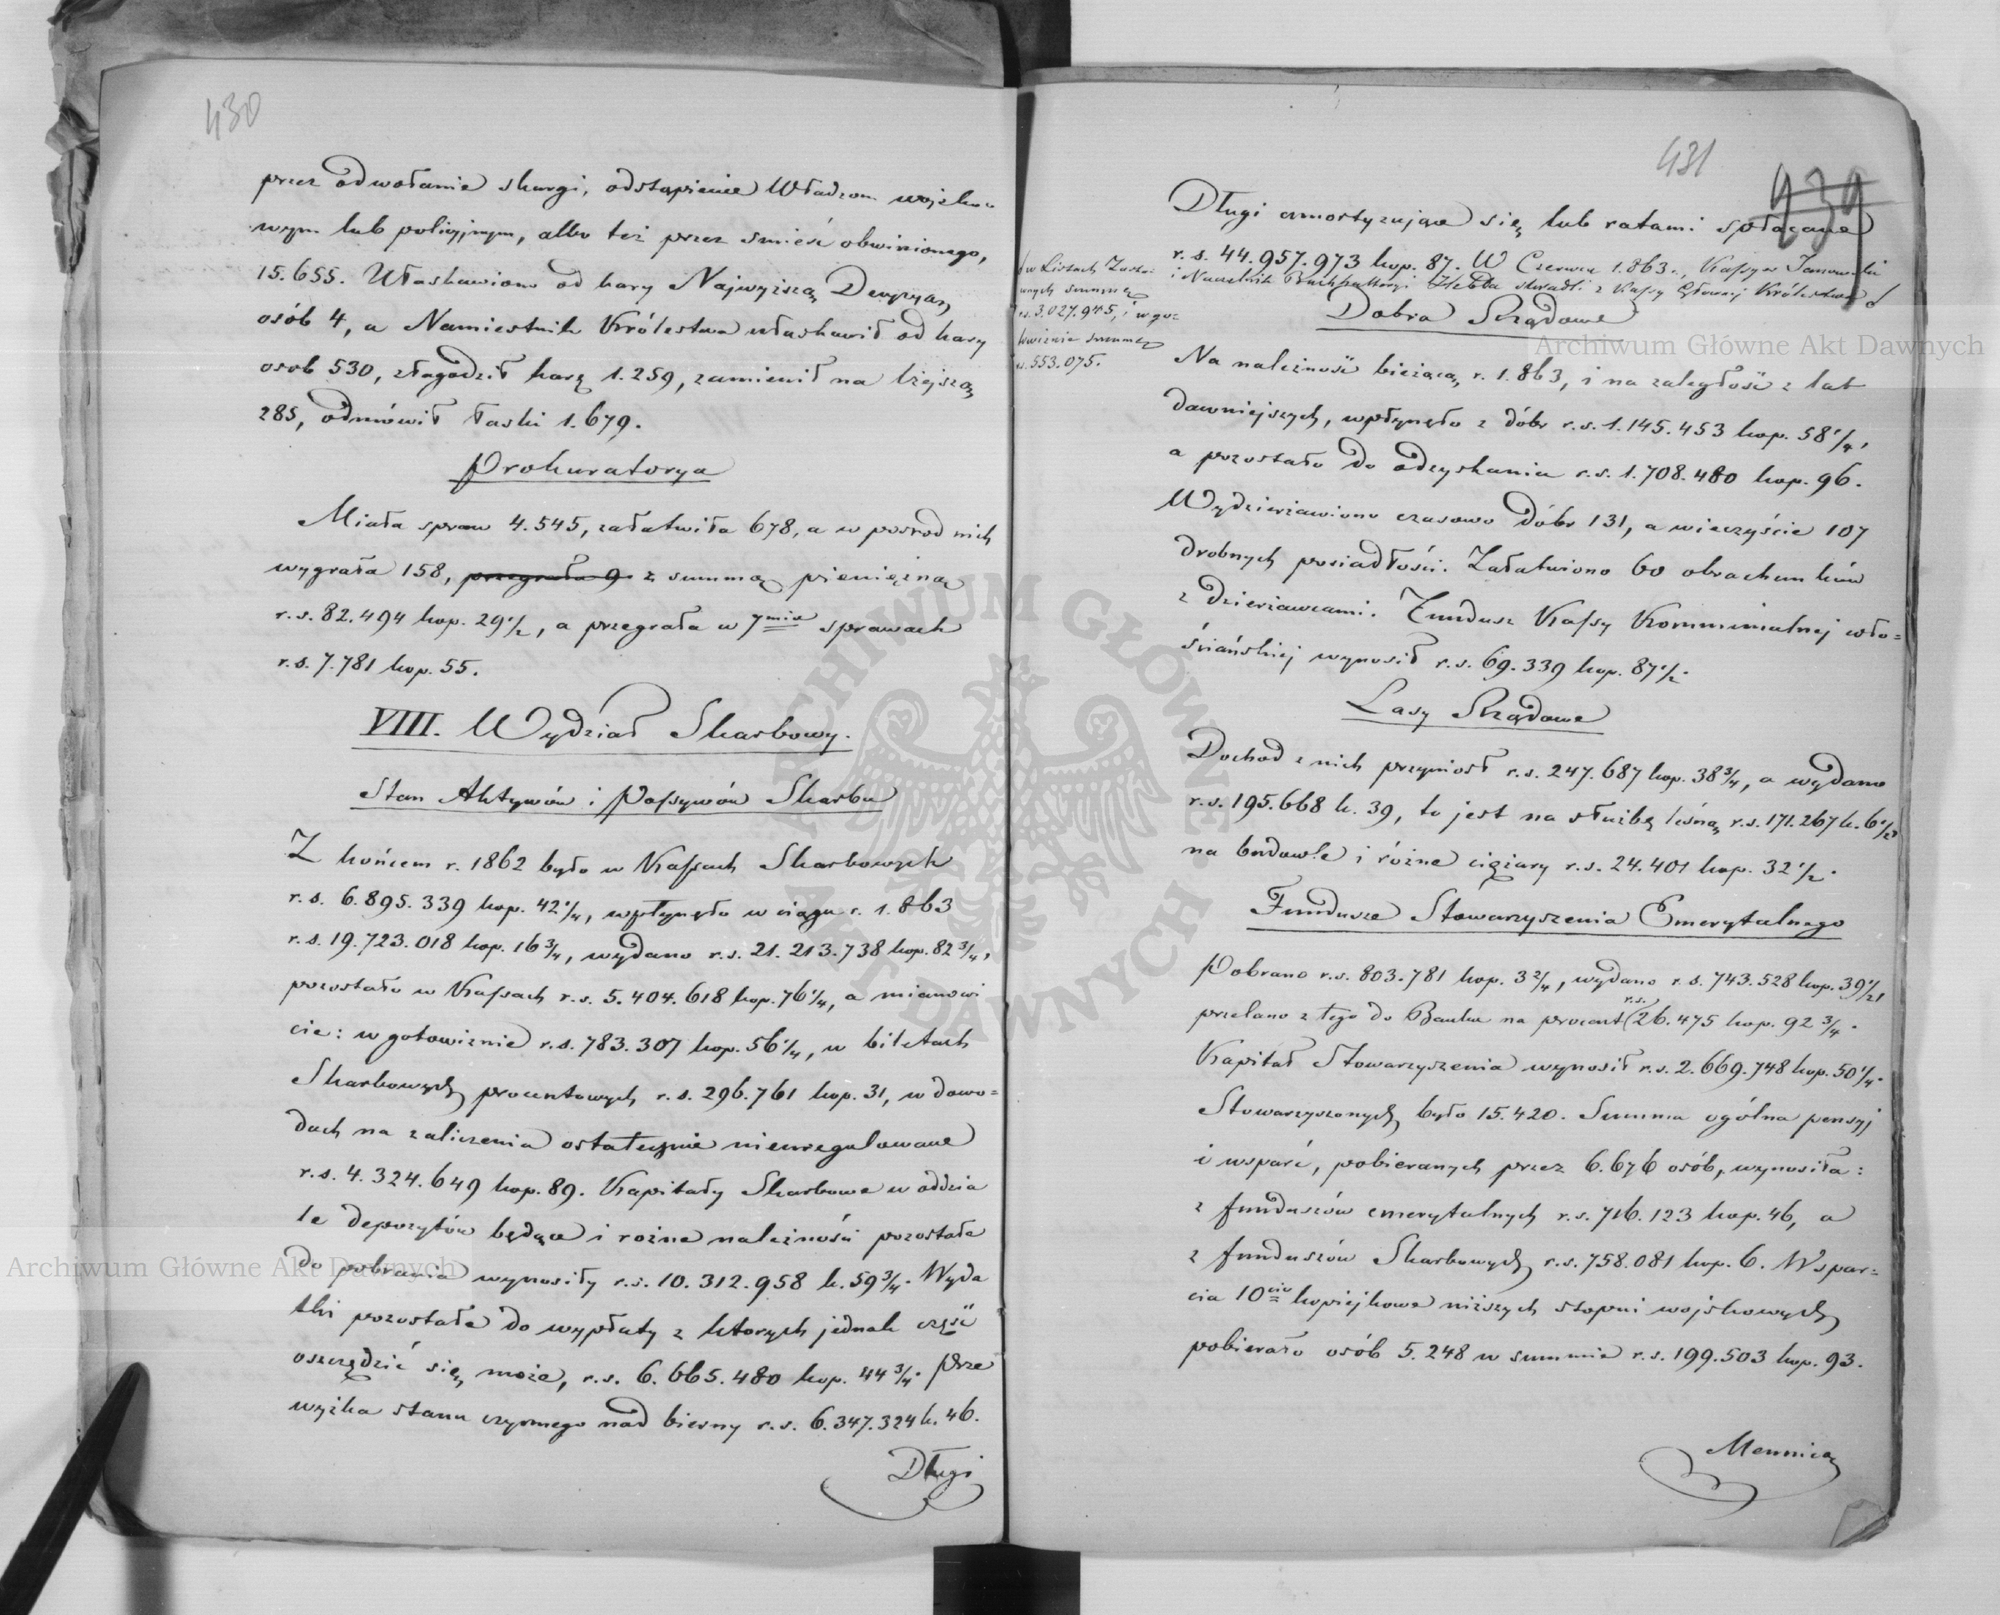 430
przez odwołanie skargi, odstąpienie Władzom wojsko=
wym lub policyjnym, albo też przez śmierć obwinionego,
15.655. Ułaskawiono od kary Najwyższą Decyzyą,
osób 4, a Namiestnik Królestwa ułaskawił od kary
osób 530, złagodził karę 1.259, zamienił na lżejszą
285, odmówił łaski 1.679.
Prokuratorya
Miała spraw 4.545, załatwiła 678, a w pośród nich
wygrała 158, przegrała 9 z summą pieniężną
r.s. 82.494 kop. 29 1/2, a przegrała w 7miu sprawach
r.s. 7.781 kop. 55.
VIII. Wydział Skarbowy.
Stan Aktywów i Passywów Skarbu
Z końcem r. 1862 było w Kassach Skarbowych
r.s. 6.895.339 kop. 42 1/4, wpłynęło w ciągu r. 1.863
r.s. 19.723.018 kop. 16 3/4, wydano r.s. 21.213.738 kop. 82 3/4,
pozostało w Kassach r.s. 5.404.618 kop. 76 1/4, a mianowi
cie: w gotowiznie r.s. 783.307 kop. 56 1/4, w biletach
Skarbowych procentowych r.s. 296.761 kop. 31, w dowo=
dach na zaliczenia ostatecznie nieuregulowane
r.s. 4.324.649 kop. 89. Kapitały Skarbowe w oddzia
le depozytów będące i rożne należności pozostałe
do pobrania wynosiły r.s. 10.312.958 k. 59 3/4. Wyda
tki pozostałe do wypłaty z ktorych jednak część
oszczędzić się może, r.s. 6.665.480 kop. 44 3/4. Prze
wyżka stanu czynnego nad bierny r.s. 6.347.324 k. 46.
Długi
431
939
Długi amortyzujące się lub ratami spłacane
r.s. 44.957.973 kop. 87. W Czerwcu 1.863., Kassyer Janowski
i Naczelnik Buchhalteryi Hebda skradli z Kassy Głównej Królestwa
w Listach Zasta=
wnych summę
r.s. 3.027.945, i w go=
towiznie summę
r.s. 553.075.
Dobra Rządowe
Na należność bieżącą r. 1.863, i na zaległość z lat
dawniejszych, wpłynęło z dóbr r.s. 1.145.453 kop. 58 1/4,
a pozostało do odzyskania r.s. 1.708.480 kop. 96.
Wydzierżawiono czasowo dóbr 131, a wieczyście 107
drobnych posiadłości. Załatwiono 60 obrachunków
z dzierżawcami. Fundusz Kassy Kommunalnej wło=
ściańskiej wynosił r.s. 69.339 kop. 87 1/2.
Lasy Rządowe
Dochod z nich przyniosł r.s. 247.687 kop. 38 3/4, a wydano
r.s. 195.668 k. 39, to jest na służbę leśną r.s. 171.267 k. 6 1/2,
na budowle i różne ciężary r.s. 24.401 kop. 32 1/2.
Fundusze Stowarzyszenia Emerytalnego
Pobrano r.s. 803.781 kop. 3 2/4, wydano r.s. 743.528 kop. 39 1/2,
przelano z tego do Banku na procent r.s. 26.475 kop. 92 3/4.
Kapitał Stowarzyszenia wynosił r.s. 2.669.748 kop. 50 1/4.
Stowarzyszonych było 15.420. Summa ogólna pensyj
i wsparć, pobieranych przez 6.676 osób, wynosiła:
z funduszów emerytalnych r.s. 716.123 kop. 46, a
z funduszów Skarbowych r.s. 758.081 kop. 6. Wspar=
cia 10cio kopiejkowe niższych stopni wojskowych
pobierało osób 5.248 w summie r.s. 199.503 kop. 93.
Mennica
Archiwum Główne Akt Dawnych
Archiwum Główne Akt Dawnych
ARCHIWUM GŁÓWNE AKT DAWNYCH